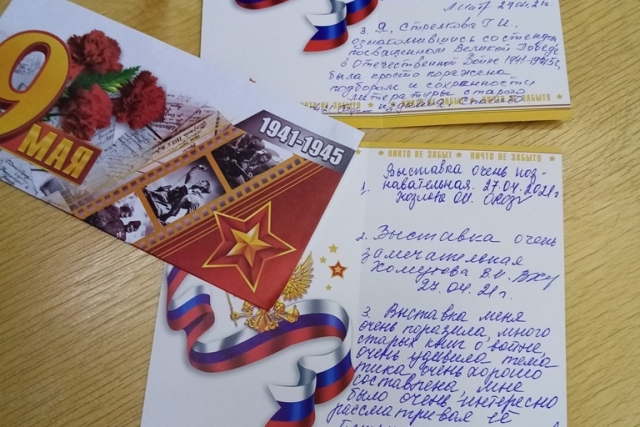 27.04.21г.
3. Я, Стрелкова Г.И.
ознакомившись со стендом
посвященном Великой Победе
в Отечественной Войне 1941-1945г.
была просто поражена
подбором и сохранности
литературы старого
издания
НИКТО НЕ ЗАБЫТ ★ НИЧТО НЕ ЗАБЫТО
9
МАЯ
1941-1945
НИКТО НЕ ЗАБЫТ ★ НИЧТО НЕ ЗАБЫТО
1. Выставка очень поз-
навательная. 27.04.2021г
2. Выставка очень
замечательная
27.04.21г.
3. Выставка меня
очень поразила, много
старых книг о войне,
очень удивила тема
тика, очень хорошо
составлена, мне
было очень интересно
рассматривая её